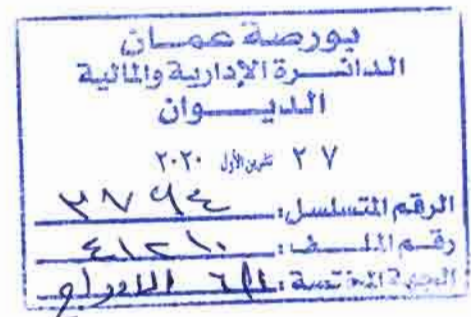 بورصة عمان
الدائرة الإدارية والمالية
الديوان
٢٧ تشرين الأول ٢٠٢٠
الرقم المتسلسل: ٣٧٩٤
رقم الملف: ٤١٢١٠
الجهة المختصة: الإدراج